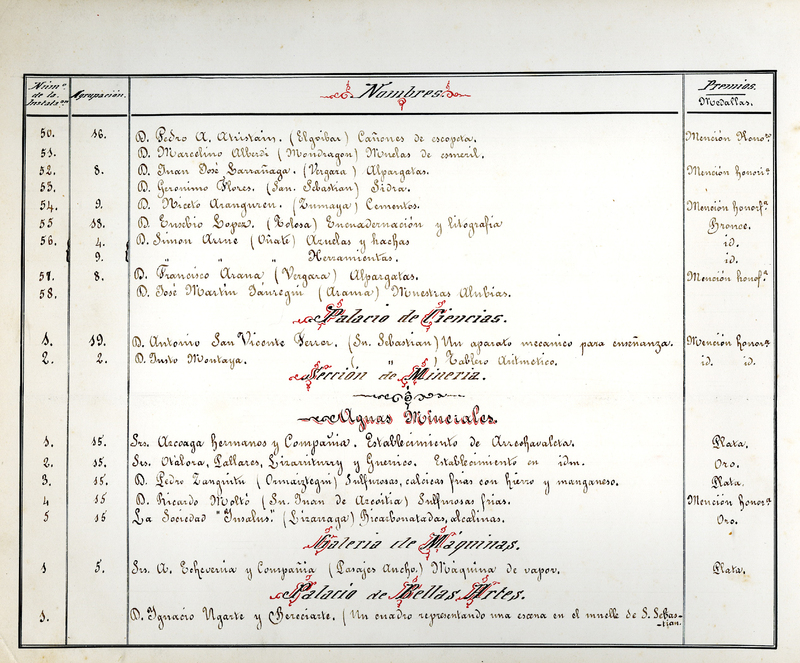 Núm.º de la Instalc.ón Agrupación. Nombres. Premios. Medallas.
50. 16. D. Pedro A. Aristain. (Elgóibar) Cañones de escopeta. Mención Hono.ª
51. D. Marcelino Alberdi (Mondragon) Muelas de esmeril.
52. 8. D. Juan José Larrañaga. (Vergara) Alpargatas. Mención honorí.ª
53. D. Geronimo Flores. (San. Sebastian) Sidra.
54. 9. D. Niceto Aranguren. (Zumaya) Cementos. Mención honorf.ª
55 18. D. Eusebio Lopez. (Tolosa) Encuadernación y litografía Bronce.
56. 4. D. Simon Arrue (Oñate) Azuelas y hachas id.
9. " " " Herramientas. id.
57. 8. D. Francisco Arana (Vergara) Alpargatas. Mención honof.ª
58. D. José Martin Jáuregui (Arama) Muestras Alubias.
Palacio de Ciencias.
1. 19. D. Antonio San Vicente Ferrer. (Sn. Sebastian) Un aparato mecánico para enseñanza. Mención honor.ª
2. 2. D. Justo Montaya. ( " ) Tablero Aritmetico. id. id.
Sección de Mineria.
Aguas Minerales.
1. 15. Srs. Arcoaga hermanos y Compañia. Establecimiento de Arrechavaleta. Plata.
2. 15. Srs. Otálora, Pallares, Lizariturry y Guerrico. Establecimiento en idm. Oro.
3. 15. D. Pedro Zangitu (Ormaiztegui) Sulfurosas, calcicas frias con hierro y manganeso. Plata.
4 15 D. Ricardo Moltó (Sn. Juan de Azcoitia) Sulfurosas frias. Mención honor.ª
5 15 La Sociedad "Insalus" (Lizarraga) Bicarbonatadas, alcalinas. Oro.
Galeria de Máquinas.
1 5. Srs. A. Echeverria y Compañia (Pasajes Ancho.) Máquina de vapor. Plata.
Palacio de Bellas Artes.
1. D. Ignacio Ugarte y Bereciarte. (Un cuadro representando una escena en el muelle de S. Sebas-
-tian.